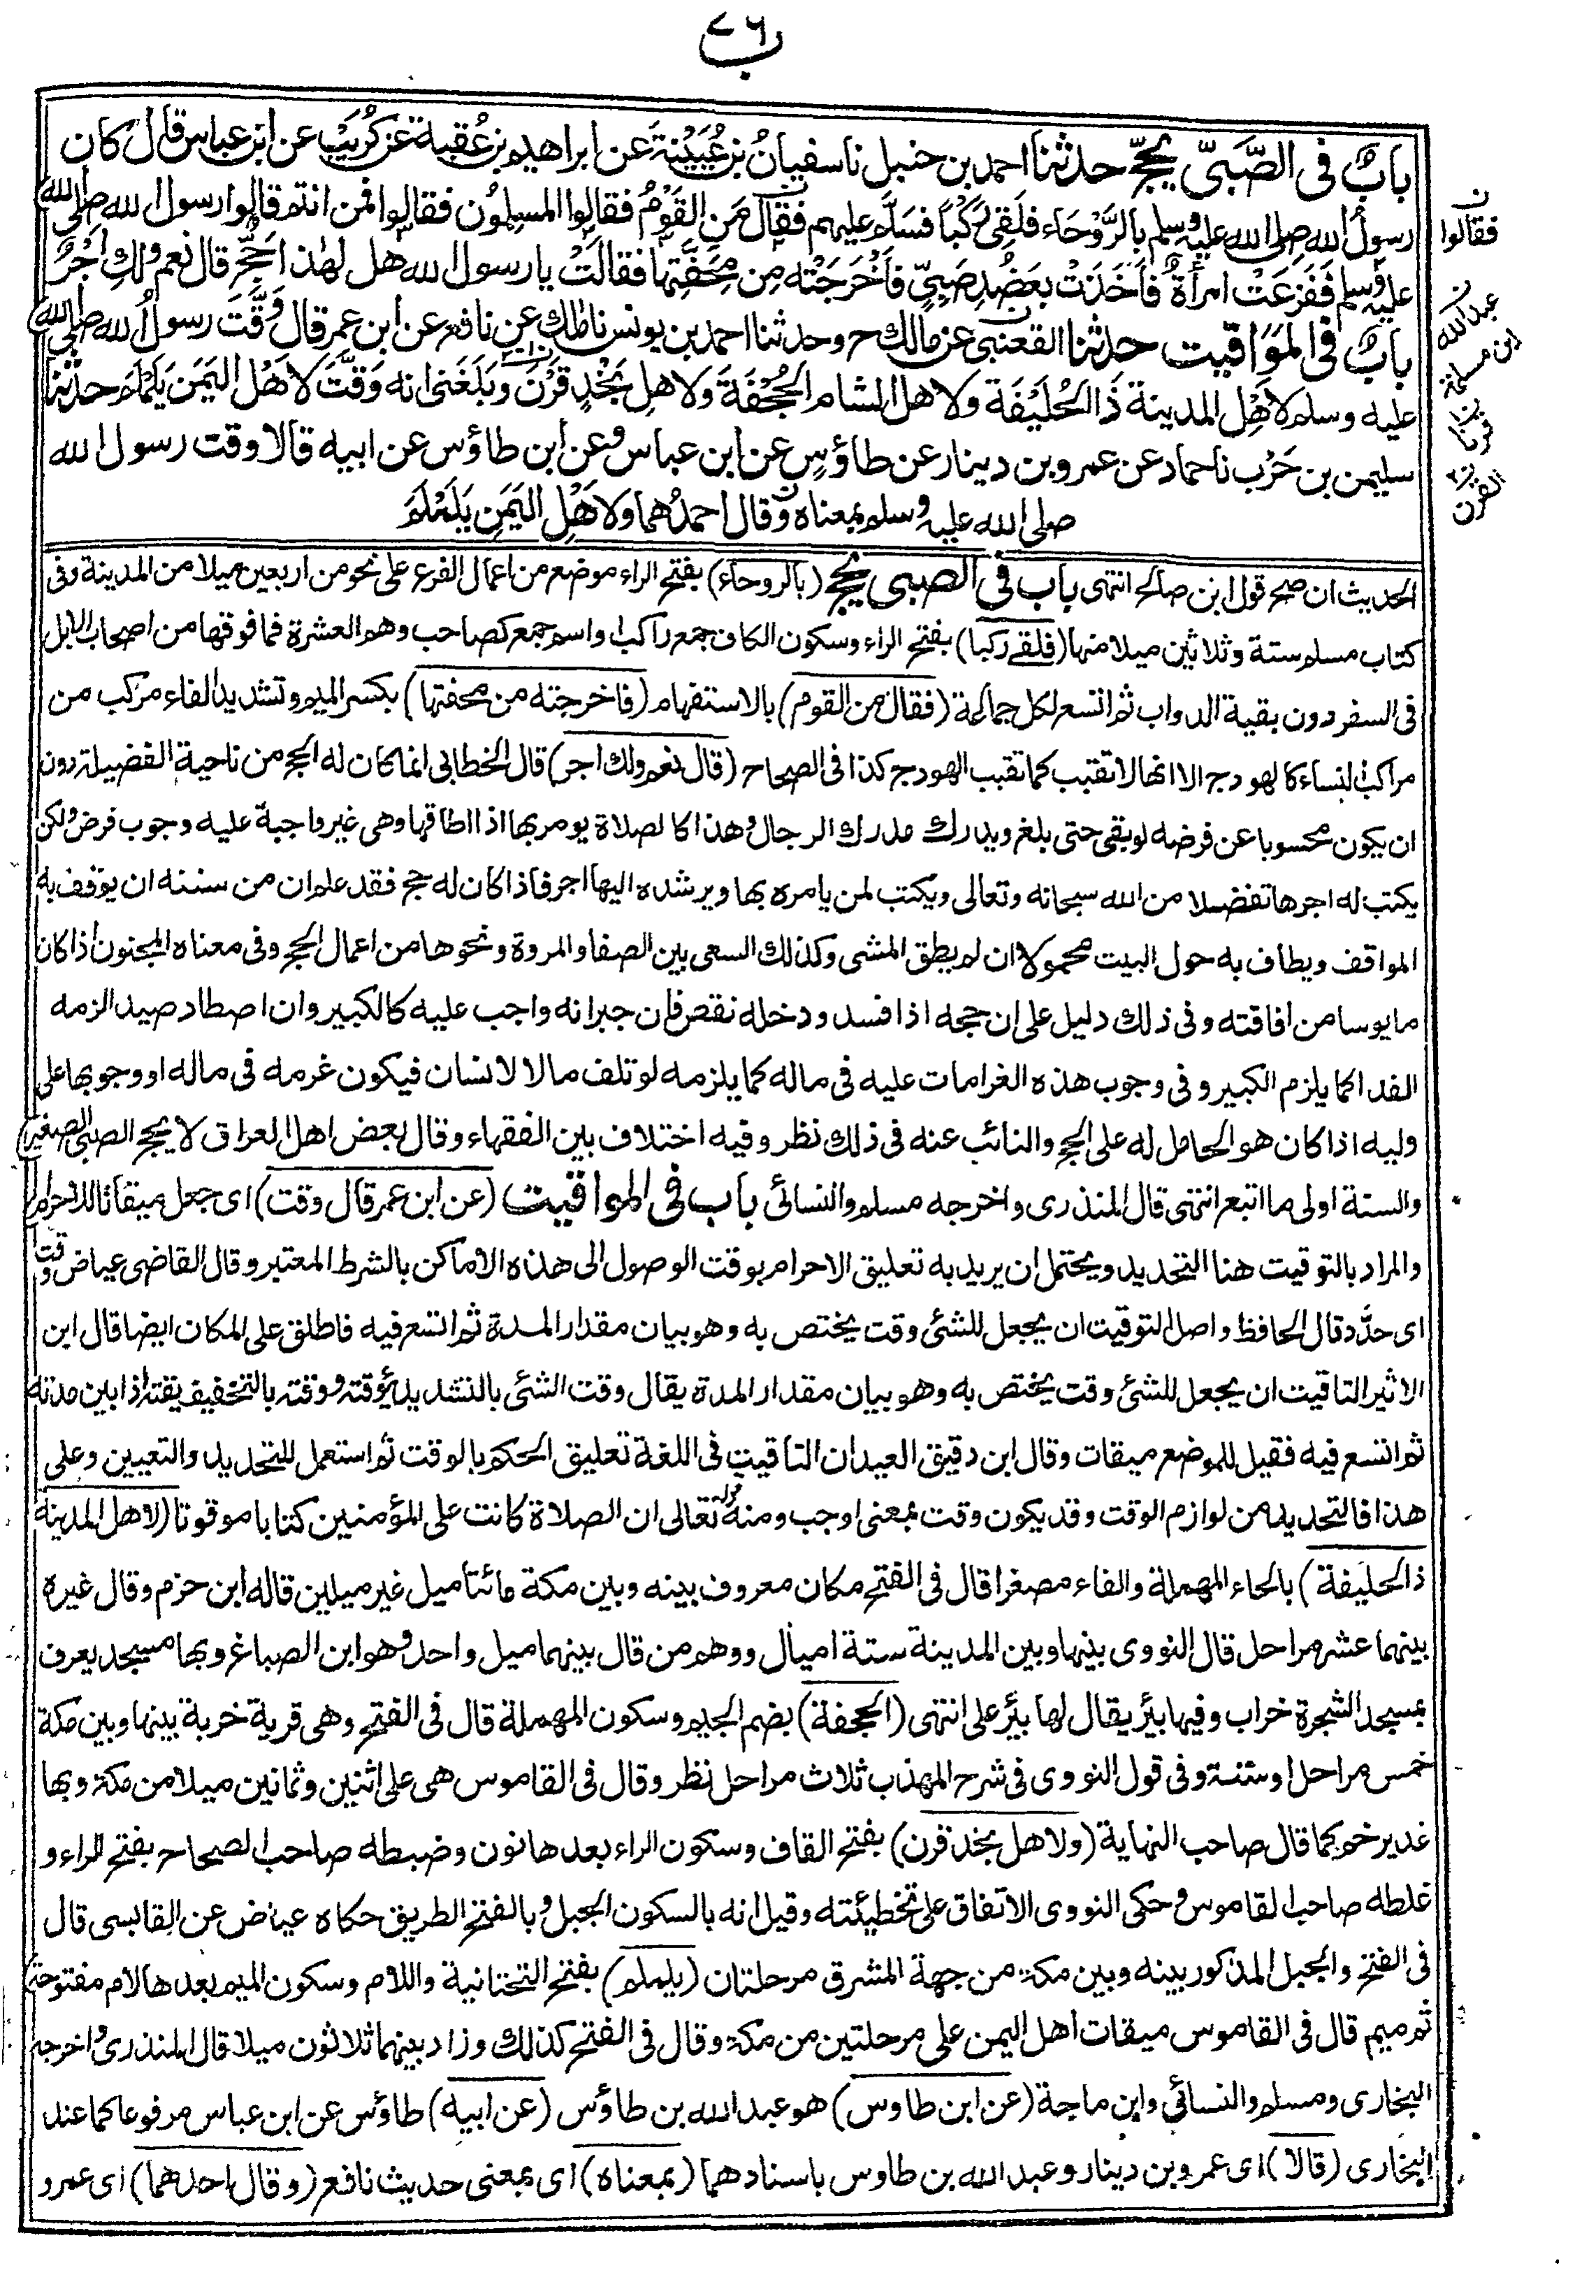 ٧٦
ب
بابٌ فى الصَّبىّ يحجّ حدثنا احمد بن حنبل نا سفيانُ بن عُيَيْنةَ عن ابراهيم بن عُقبة عن كُرَيْبٍ عن ابن عباس قال كان
رسولُ الله صلى الله عليه وسلم بالرَّوْحَاء فلَقِىَ رَكْبًا فسَلَّم عليهم فقال مَنِ القَوْمُ فقالوا المسلِمُون فقالوا فمن انتم قالوا رسول الله صلى الله
عليه وسلم فَفَزِعَتْ امرأةٌ فاَخَذَتْ بعَضُدِ صَبِيٍّ فاَخْرَجَتْه مِن مِحَفَّتِها فقالَتْ يا رسول الله هل لهٰذا حَجٌّ قال نعم ولكِ اَجْرٌ
بابٌ فى المَوَاقيت حدثنا القعنبى عن مالك ح وحدثنا احمد بن يونس نا مالك عن نافع عن ابن عمر قال وَقَّتَ رسولُ الله صلى الله
عليه وسلم لاَهْلِ المدينة ذَا الحُلَيْفَة ولاهل الشام الجُحْفَةَ ولاهلِ نَجْدٍ قَرْنَ وبَلَغَنى انه وَقَّتَ لاَهْل اليَمَن يَلَمْلَم حدثنا
سليمن بن حَرْب نا حماد عن عمرو بن دينار عن طاؤسٍ عن ابن عباس وعن ابن طاؤس عن ابيه قالا وقت رسول الله
صلى الله عليه وسلم بمعناه وقال احدُهما ولاَهْلِ اليَمَنِ يَلَمْلَمَ
فقالوا
عبد الله
ابن مسلمة
قرنا
القرن
الحديث ان صح قول ابن صالح انتهى باب فى الصبى يحج (بالروحاء) بفتح الراء موضع من اعمال الفرع على نحو من اربعين ميلا من المدينة وفى
كتاب مسلم ستة وثلاثين ميلا منها (فلقى ركبا) بفتح الراء وسكون الكاف جمع راكب او اسم جمع كصاحب وهم العشرة فما فوقها من اصحاب الابل
فى السفر دون بقية الدواب ثم اتسع لكل جماعة (فقال من القوم) بالاستفهام (فاخرجته من محفتها) بكسر الميم وتشديد الفاء مركب من
مراكب النساء كالهودج الا انها لا تقبب كما تقبب الهودج كذا فى الصحاح (قال نعم ولك اجر) قال الخطابى انما كان له الحج من ناحية الفضيلة دون
ان يكون محسوبا عن فرضه لو بقى حتى بلغ ويدرك مدرك الرجال وهذا كالصلاة يومر بها اذا اطاقها وهى غير واجبة عليه وجوب فرض ولكن
يكتب له اجرها تفضلا من الله سبحانه وتعالى ويكتب لمن يامره بها ويرشده اليها اجر فاذا كان له حج فقد علم ان من سننه ان يوقف به
المواقف ويطاف به حول البيت محمولا ان لم يطق المشى وكذلك السعى بين الصفا والمروة ونحوها من اعمال الحج وفى معناه المجنون اذا كان
مايوسا من افاقته وفى ذلك دليل على ان حجه اذا فسد ودخله نقص فان جبرانه واجب عليه كالكبير وان اصطاد صيدا لزمه
الفدا كما يلزم الكبير وفى وجوب هذه الغرامات عليه فى ماله كما يلزمه لو تلف مالا لانسان فيكون غرمه فى ماله او وجوبها على
وليه اذا كان هو الحامل له على الحج والنائب عنه فى ذلك نظر وفيه اختلاف بين الفقهاء وقال بعض اهل العراق لا يحج الصبى الصغير
والسنة اولى ما اتبع انتهى قال المنذرى واخرجه مسلم والنسائى باب فى المواقيت (عن ابن عمر قال وقت) اى جعل ميقاتا للاحرام
والمراد بالتوقيت هنا التحديد ويحتمل ان يريد به تعليق الاحرام بوقت الوصول الى هذه الاماكن بالشرط المعتبر وقال القاضى عياض وقت
اى حدّد قال الحافظ واصل التوقيت ان يجعل للشئ وقت يختص به وهو بيان مقدار المدة ثم اتسع فيه فاطلق على المكان ايضا قال ابن
الاثير التاقيت ان يجعل للشئ وقت يختص به وهو بيان مقدار المدة يقال وقت الشئ بالتشديد يؤقته ووقته بالتخفيف يقته اذا بين مدته
ثم اتسع فيه فقيل للموضع ميقات وقال ابن دقيق العيد ان التاقيت فى اللغة تعليق الحكم بالوقت ثم استعمل للتحديد والتعيين وعلى
هذا فالتحديد من لوازم الوقت وقد يكون وقت بمعنى اوجب ومنه قوله تعالى ان الصلاة كانت على المؤمنين كتابا موقوتا (لاهل المدينة
ذا الحليفة) بالحاء المهملة والفاء مصغرا قال فى الفتح مكان معروف بينه وبين مكة مائتا ميل غير ميلين قاله ابن حزم وقال غيره
بينهما عشر مراحل قال النووى بينها وبين المدينة ستة اميال ووهم من قال بينهما ميل واحد وهو ابن الصباغ وبها مسجد يعرف
بمسجد الشجرة خراب وفيها بئر يقال لها بئر على انتهى (الجحفة) بضم الجيم وسكون المهملة قال فى الفتح وهى قرية خربة بينها وبين مكة
خمس مراحل او ستة وفى قول النووى فى شرح المهذب ثلاث مراحل نظر وقال فى القاموس هى على اثنين وثمانين ميلا من مكة وبها
غدير خم كما قال صاحب النهاية (ولاهل نجد قرن) بفتح القاف وسكون الراء بعدها نون وضبطه صاحب الصحاح بفتح الراء و
غلطه صاحب القاموس وحكى النووى الاتفاق على تخطيئته وقيل انه بالسكون الجبل وبالفتح الطريق حكاه عياض عن القابسى قال
فى الفتح والجبل المذكور بينه وبين مكة من جهة المشرق مرحلتان (يلملم) بفتح التحتانية واللام وسكون الميم بعدها لام مفتوحة
ثم ميم قال فى القاموس ميقات اهل اليمن على مرحلتين من مكة وقال فى الفتح كذلك وزاد بينهما ثلاثون ميلا قال المنذرى واخرجه
البخارى ومسلم والنسائى وابن ماجة (عن ابن طاوس) هو عبد الله بن طاؤس (عن ابيه) طاؤس عن ابن عباس مرفوعا كما عند
البخارى (قالا) اى عمرو بن دينار وعبد الله بن طاوس باسنادهما (بمعناه) اى بمعنى حديث نافع (وقال احدهما) اى عمرو